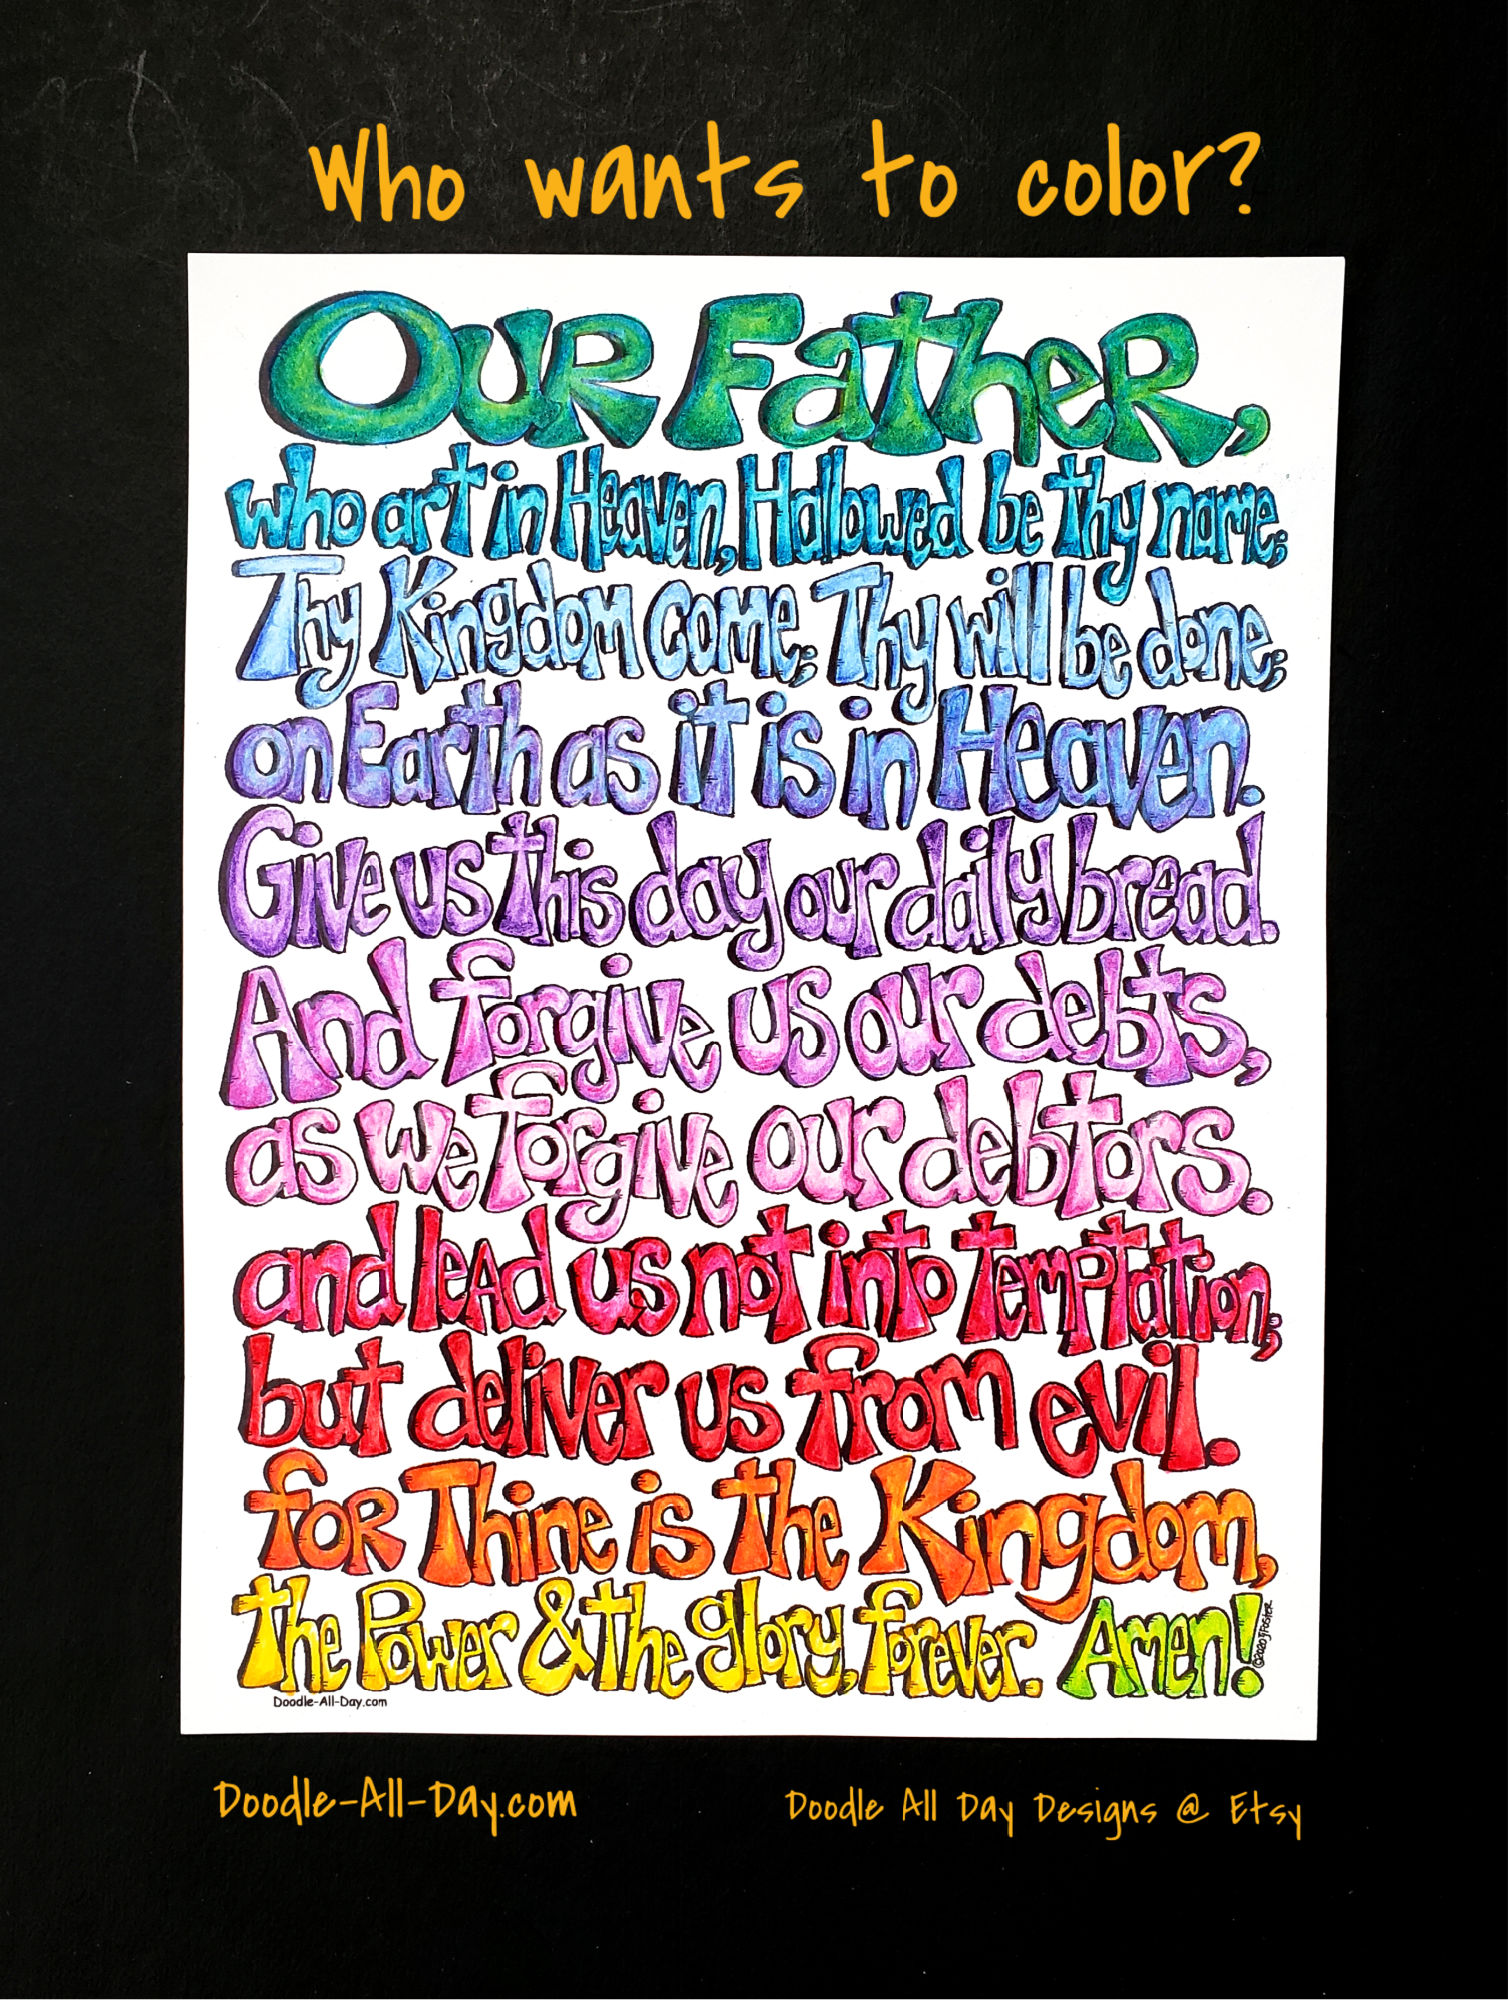 Who wants to color?
Our Father,
who art in Heaven, Hallowed be thy name;
Thy Kingdom come; Thy will be done;
on Earth as it is in Heaven.
Give us this day our daily bread.
And forgive us our debts,
as we forgive our debtors.
and lead us not into temptation;
but deliver us from evil.
for Thine is the Kingdom,
the Power & the glory, forever. Amen!
©2020 J FOSTER
Doodle-All-Day.com
Doodle-All-Day.com
Doodle All Day Designs @ Etsy